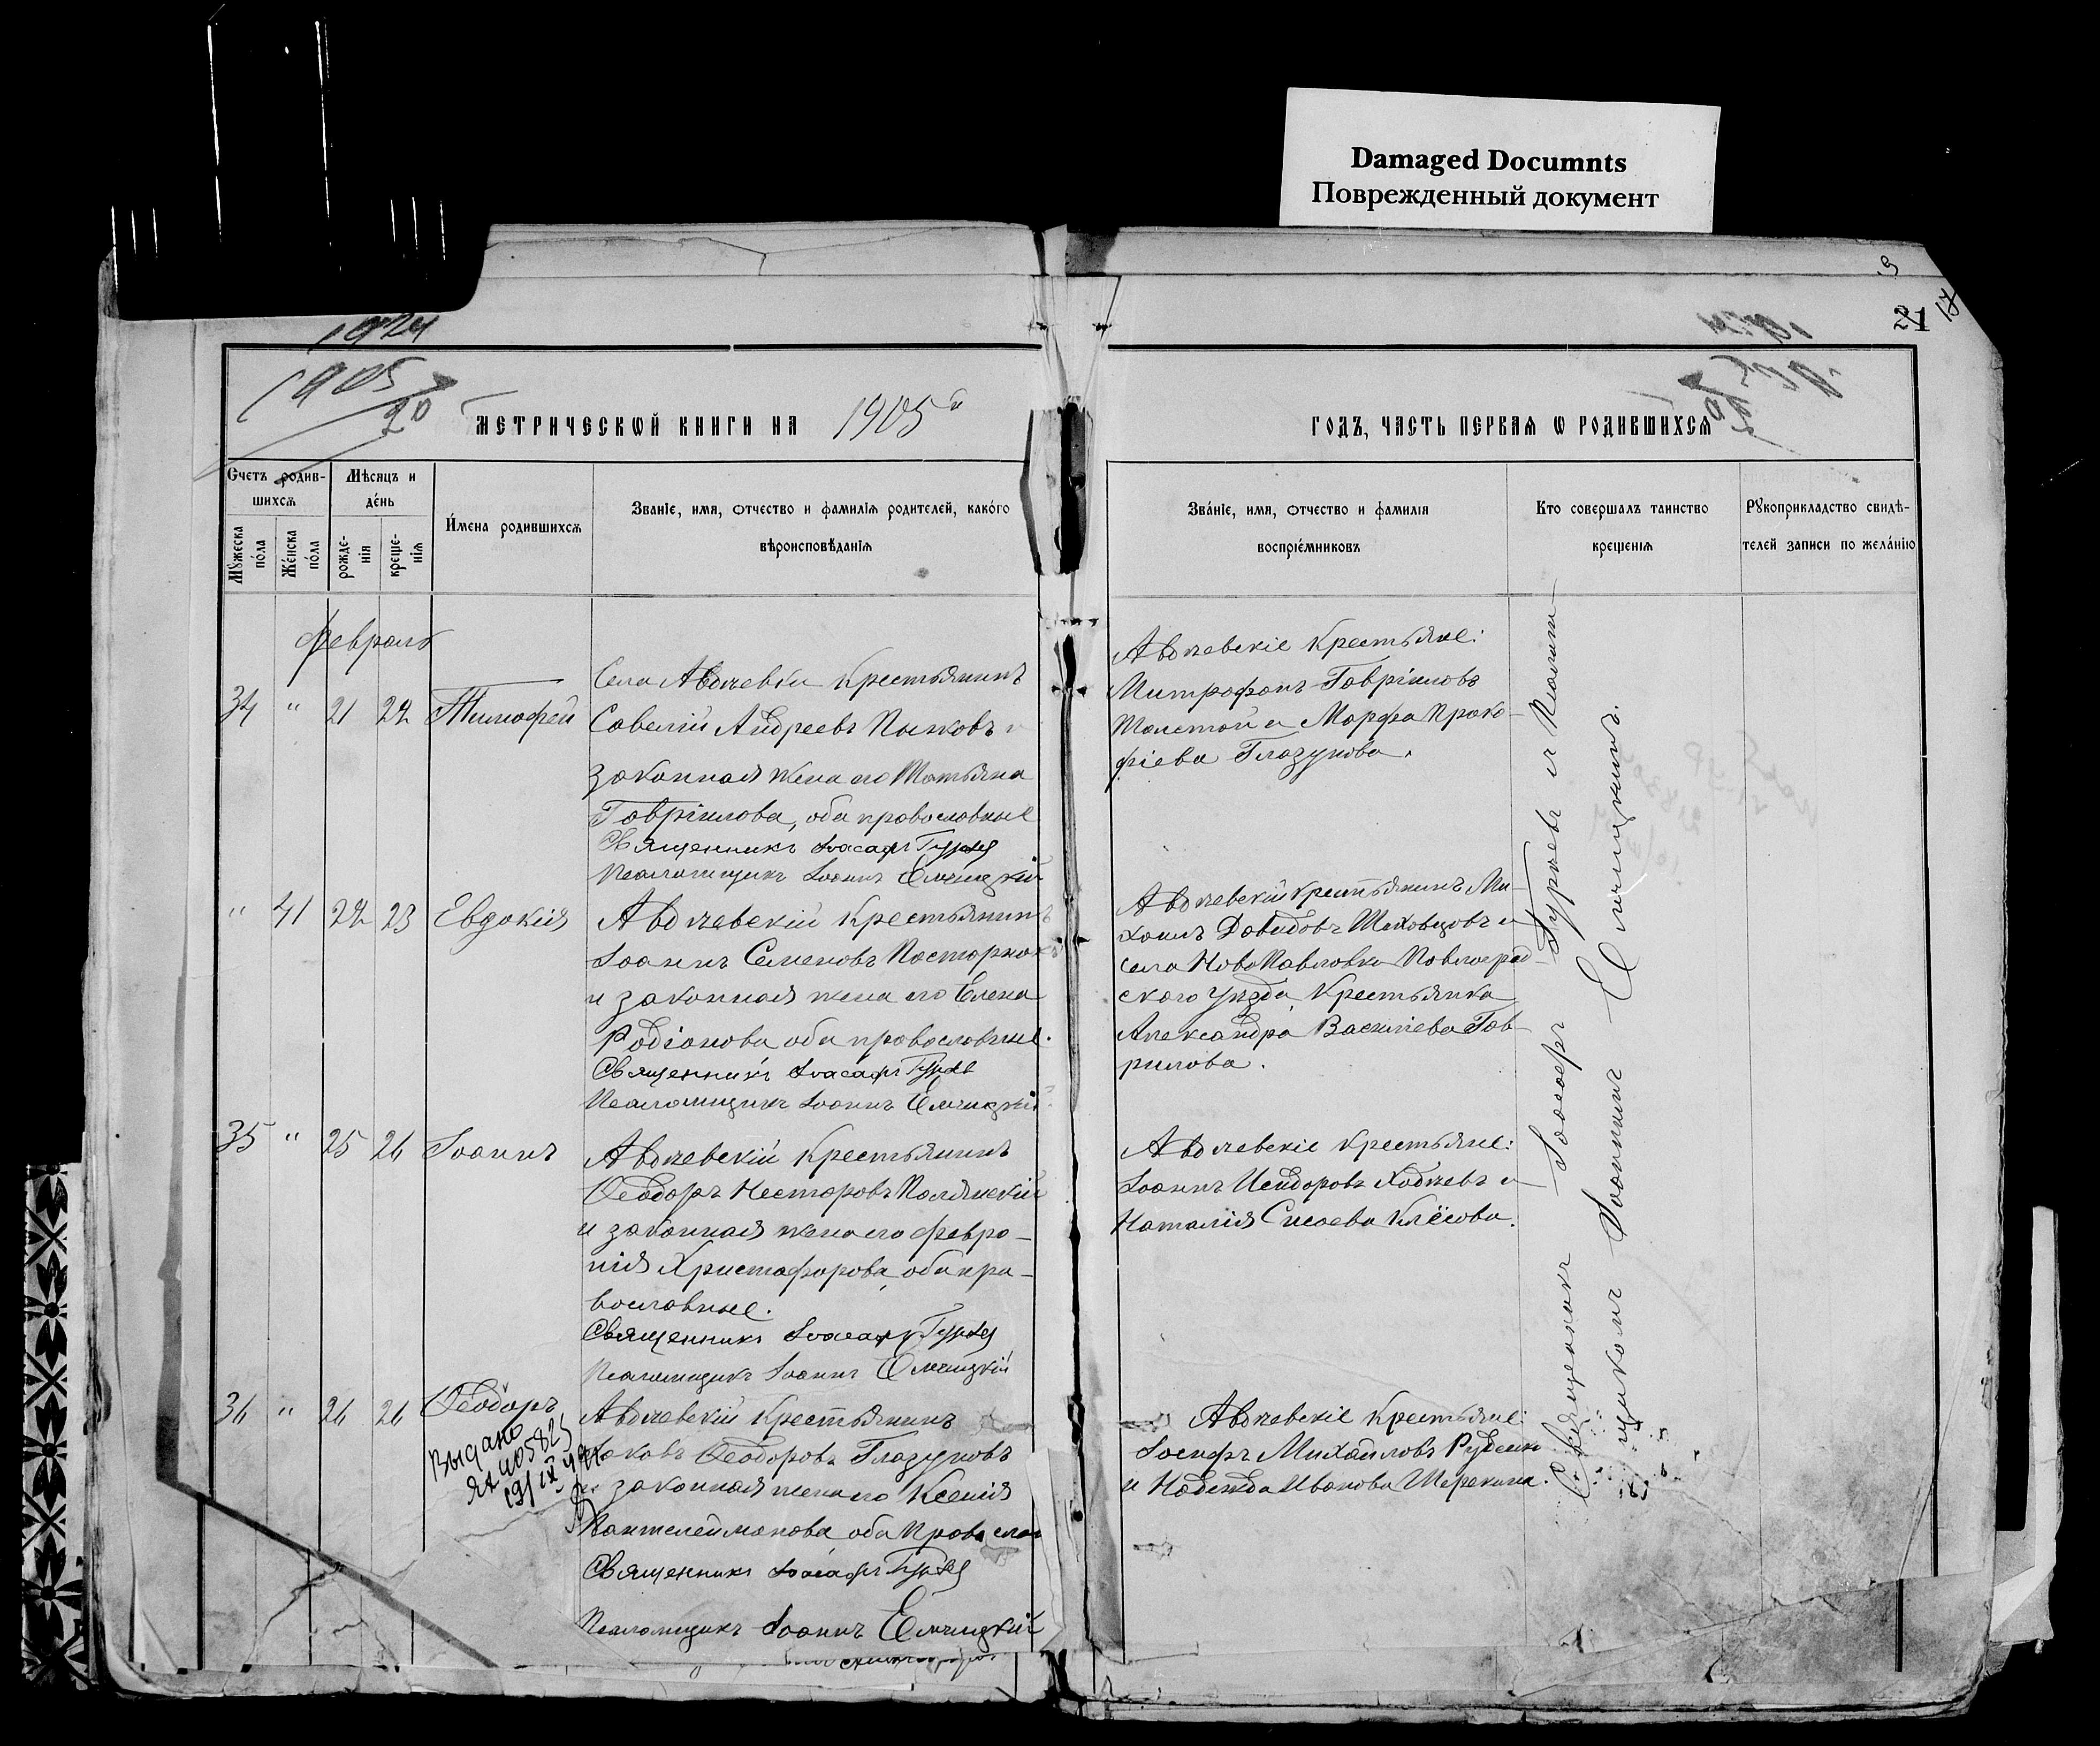 Damaged Documnts
Поврежденный документ
1924
1905
20
21
17
МЕТРИЧЕСКОЙ КНИГИ НА 1905й
ГОДЪ, ЧАСТЬ ПЕРВАЯ Ѡ РОДИВШИХСЯ
Счетъ родив-
шихся
Мужеска
пола
Женска
пола
Мѣсяцъ и
день
рожде-
нія
креще-
нія
Имена родившихся
Званіе, имя, отчество и фамилія родителей, какого
вѣроисповѣданія
Званіе, имя, отчество и фамилія
воспріемниковъ
Кто совершалъ таинство
крещенія
Рукоприкладство свидѣ-
телей записи по желанію
Февраль
34 " 21 22 Тимофей
Села Авдѣевки крестьянинъ
Савелій Андреевъ Пыжовъ и
законная жена его Татьяна
Гавріилова, оба православные
Священникъ Іоасафъ Гурьевъ
Псаломщикъ Іоаннъ Елчицкій
Авдѣевскіе крестьяне:
Митрофанъ Гавріиловъ
Толстой и Марфа Проко-
фіева Глазунова.
" 41 22 23 Евдокія
Авдѣевскій крестьянинъ
Іоаннъ Семеновъ Пастернак
и законная жена его Елена
Родіонова оба православные.
Священникъ Іоасафъ Гурьевъ
Псаломщикъ Іоаннъ Елчицкій
Авдѣевскій крестьянинъ Ми-
хаилъ Давидовъ Шаховцовъ и
села НовоПавловки Павлоград-
скаго уѣзда, крестьянка
Александра Васильева Гав-
рилова.
35 " 25 26 Іоаннъ
Авдѣевскій крестьянинъ
Ѳеодоръ Несторовъ Полянскій
и законная жена его Февро-
нія Христофорова, оба пра-
вославные.
Священникъ Іоасафъ Гурьевъ
Псаломщикъ Іоаннъ Елчицкій
Авдѣевскіе крестьяне:
Іоаннъ Исидоровъ Ходѣевъ и
Наталія Сисоева Клёсова.
36 " 26 26 Ѳеодоръ
Выдано
Авдѣевскій крестьянинъ
Іаковъ Ѳеодоровъ Глазуновъ
и законная жена его Ксенія
Пантелеймонова оба правосла
Священникъ Іоасафъ Гурьевъ
Псаломщикъ Іоаннъ Елчицкій
Авдѣевскіе крестьяне:
Іосифъ Михайловъ Руденко
и Надежда Иванова Шерекина.
Священникъ Іоасафъ Гурьевъ и Псалом-
щикомъ Іоанномъ Елчицкимъ.